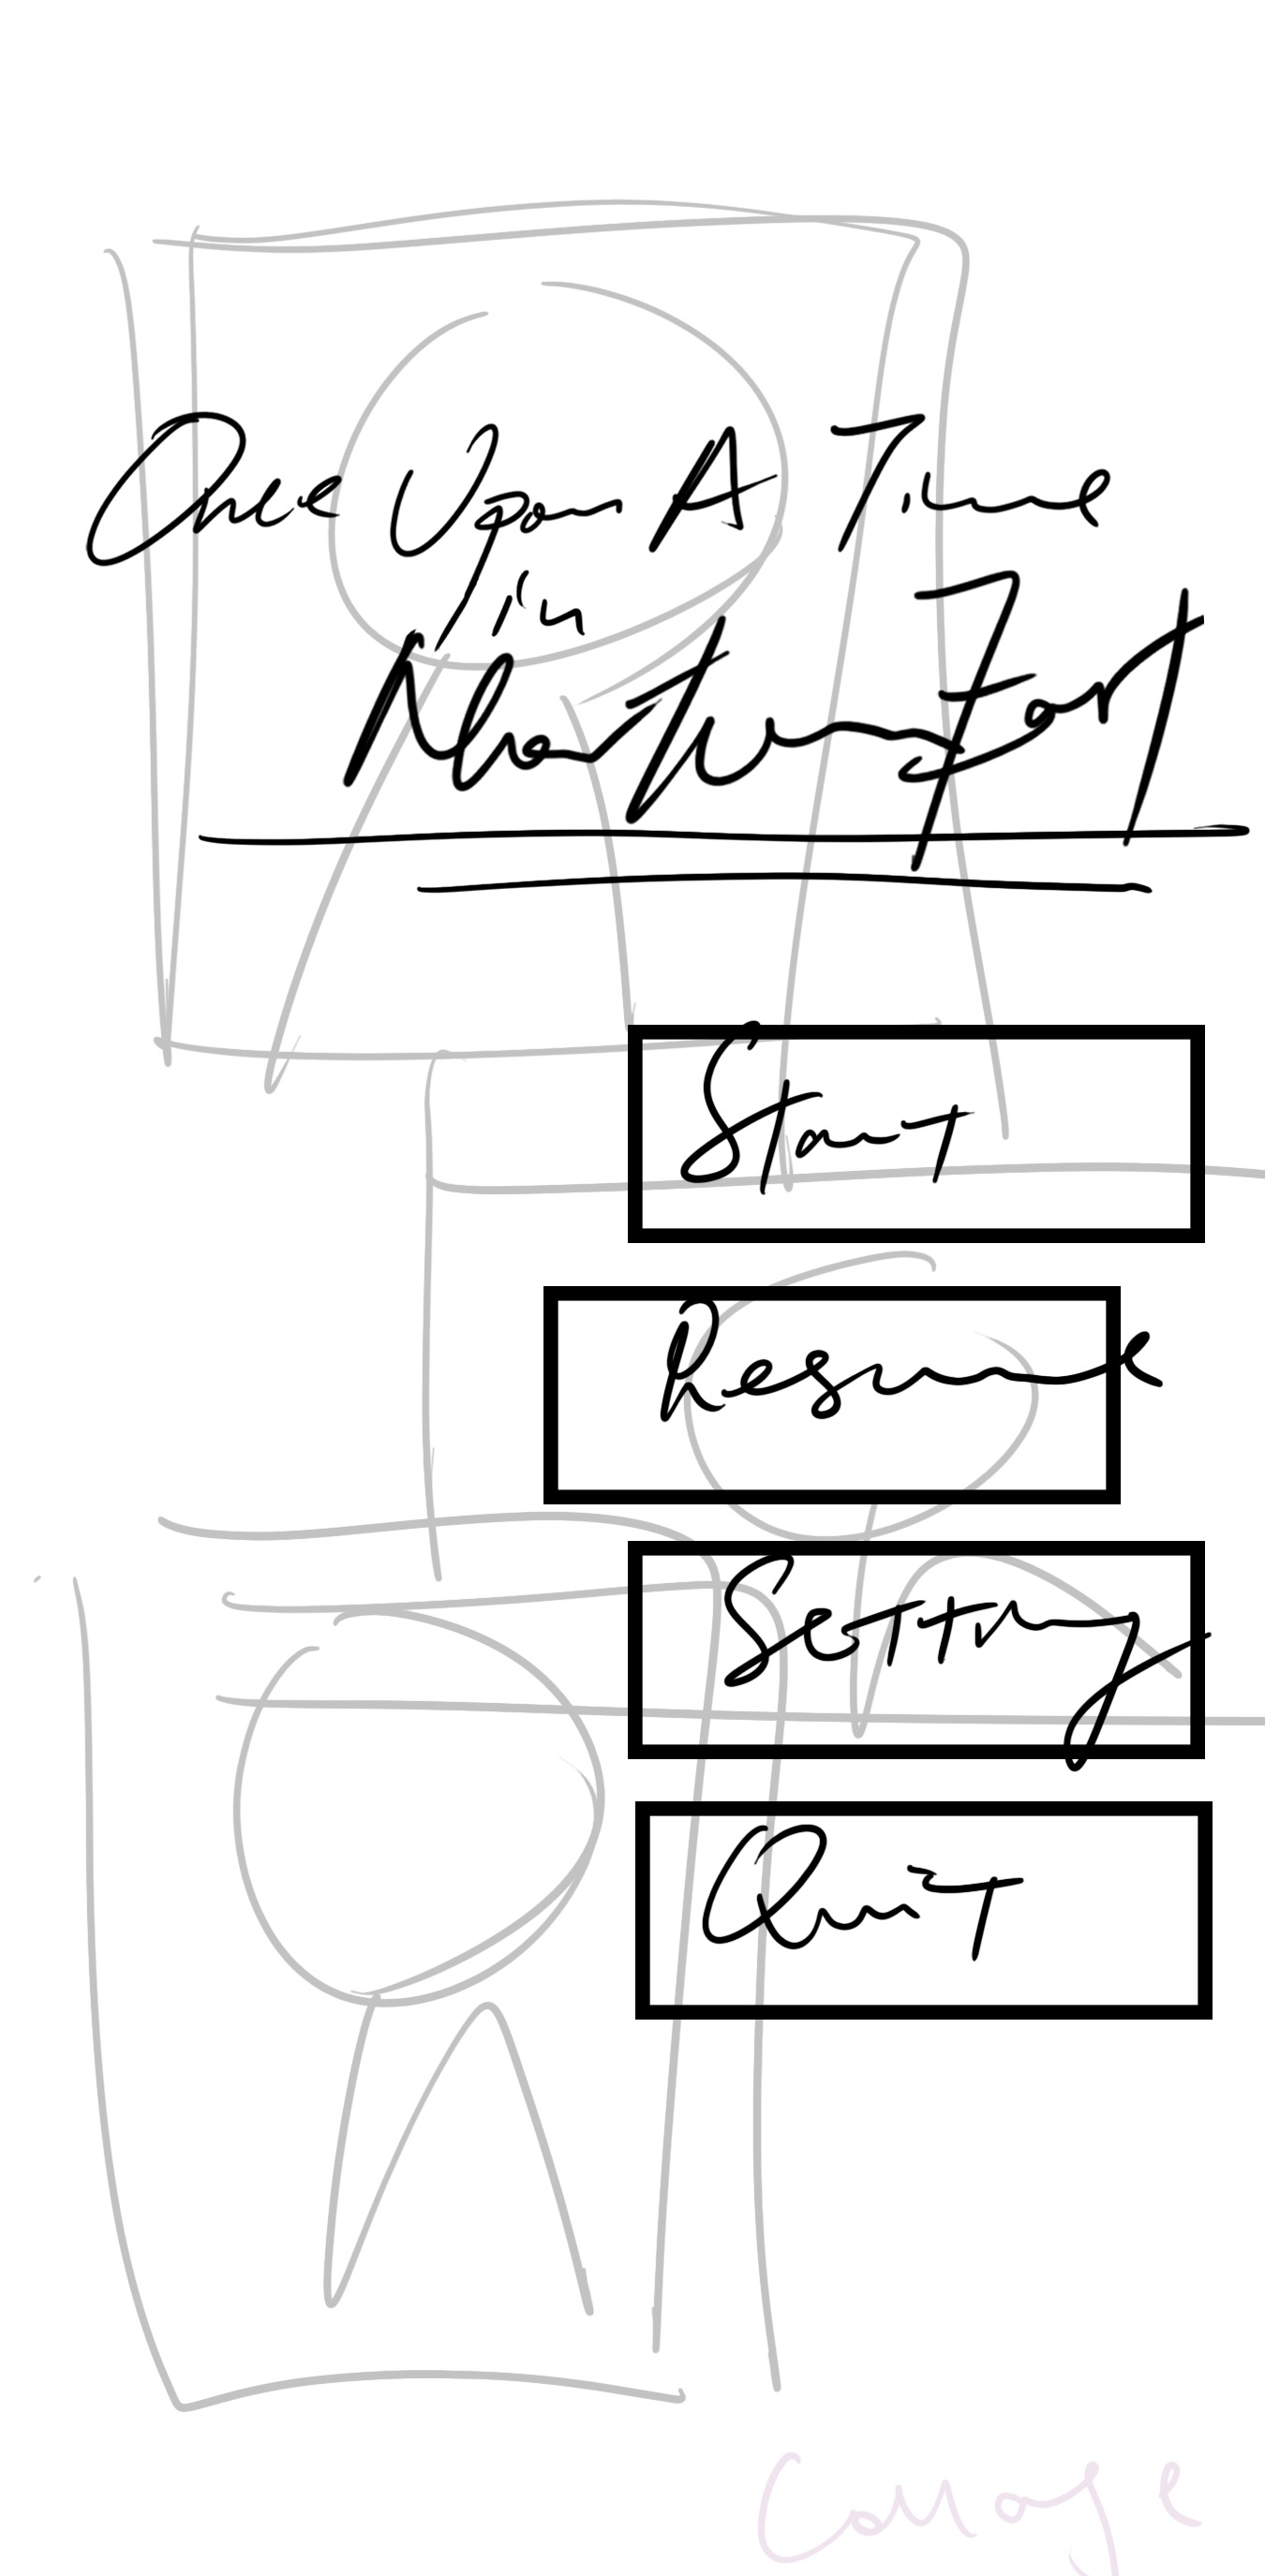 Once Upon A Time
in
Start
Resume
Setting
Quit
Collage